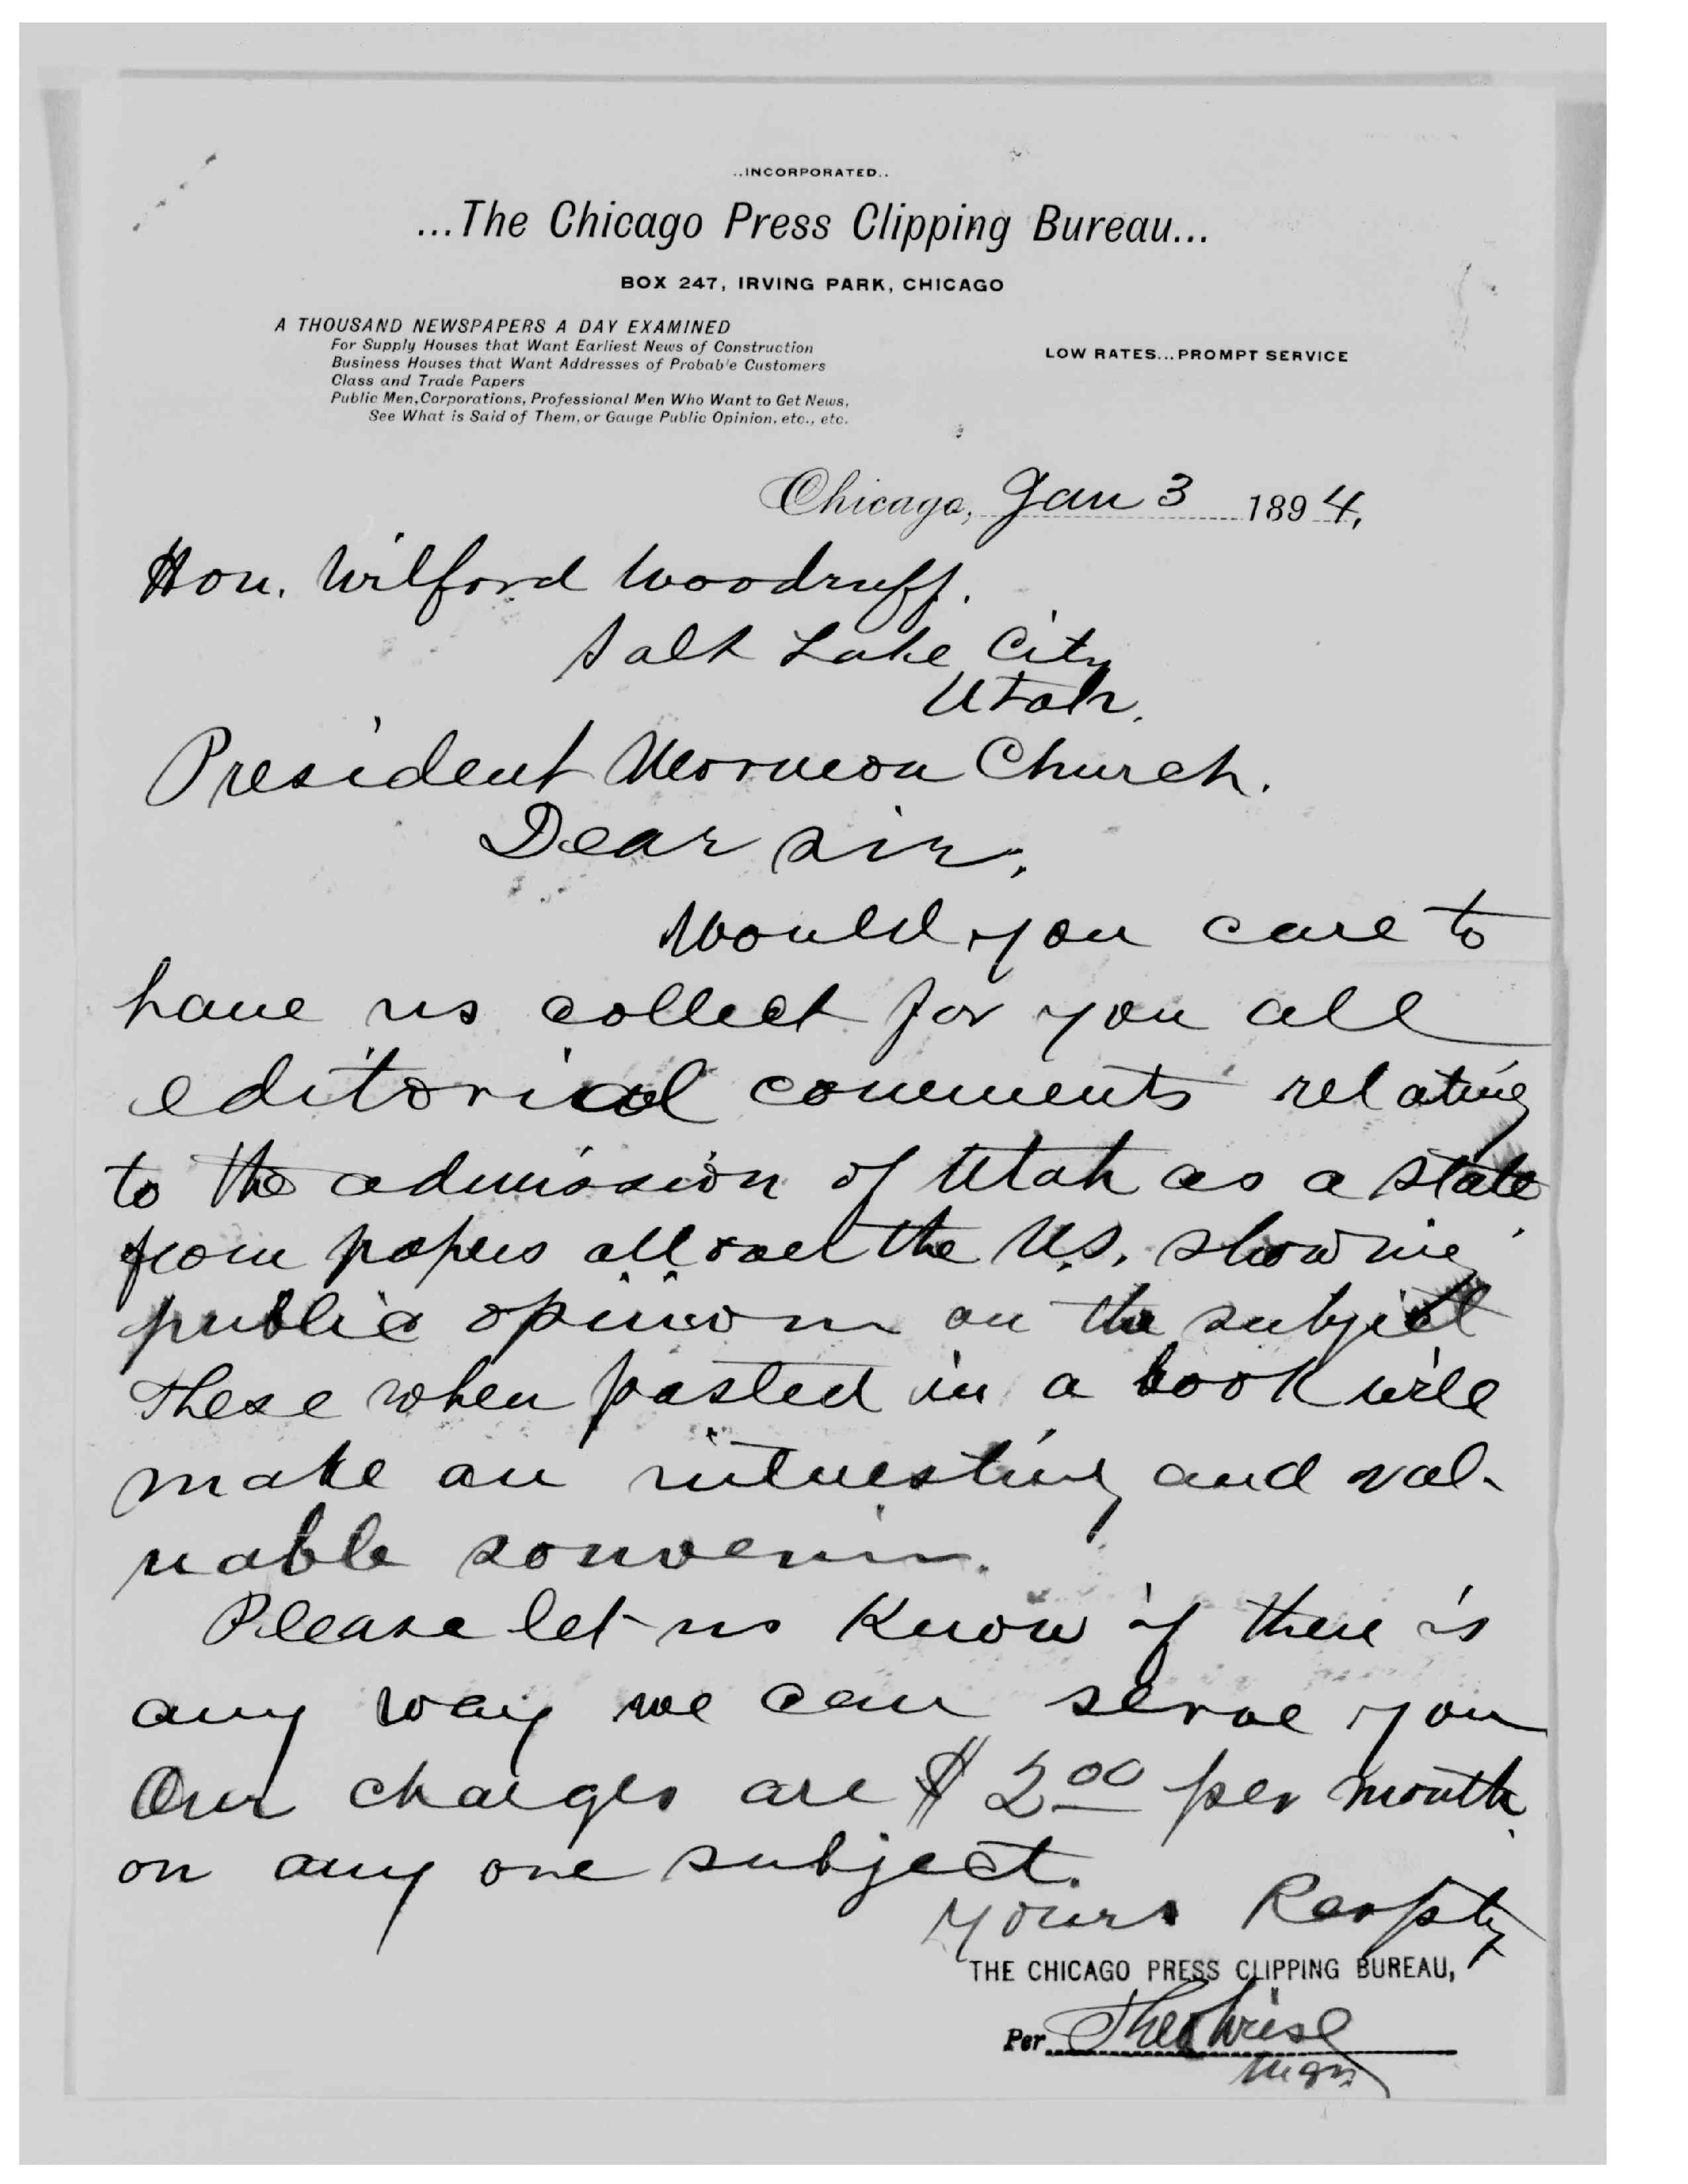 ..INCORPORATED..
...The Chicago Press Clipping Bureau...
BOX 247, IRVING PARK, CHICAGO
A THOUSAND NEWSPAPERS A DAY EXAMINED
For Supply Houses that Want Earliest News of Construction
Business Houses that Want Addresses of Probable Customers
Class and Trade Papers
Public Men, Corporations, Professional Men Who Want to Get News,
See What is Said of Them, or Gauge Public Opinion, etc., etc.
LOW RATES...PROMPT SERVICE
Chicago, Jan 3 1894,
Hon. Wilford Woodruff.
Salt Lake City
Utah.
President Mormon Church.
Dear Sir,
Would you care to
have us collect for you all
editorial comments relating
to the admission of Utah as a state
from papers all over the U.S. showing
public opinion on the subject
These when pasted in a book will
make an interesting and val-
uable souvenir.
Please let us know if there is
any way we can serve you
Our charges are $2.00 per month
on any one subject.
Yours Respty
THE CHICAGO PRESS CLIPPING BUREAU,
Per Theo Wiese
Mgr